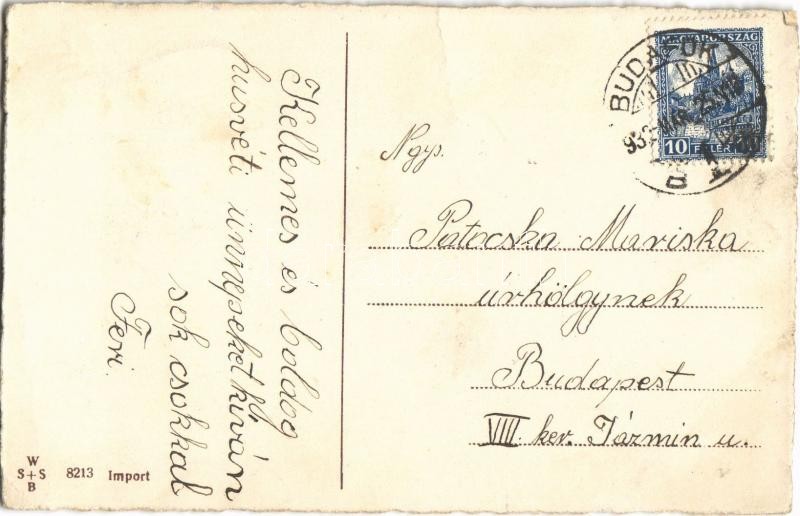 Kellemes és boldog
husvéti ünnepeket kíván
sok csokkal
Feri.
Ngys.
Patocska Mariska
úrhölgynek
Budapest
VIII ker. Jázmin u.
MAGYARORSZÁG
10 FILLÉR
BUDAFOK
932
B
W
S+S
B
8213 Import